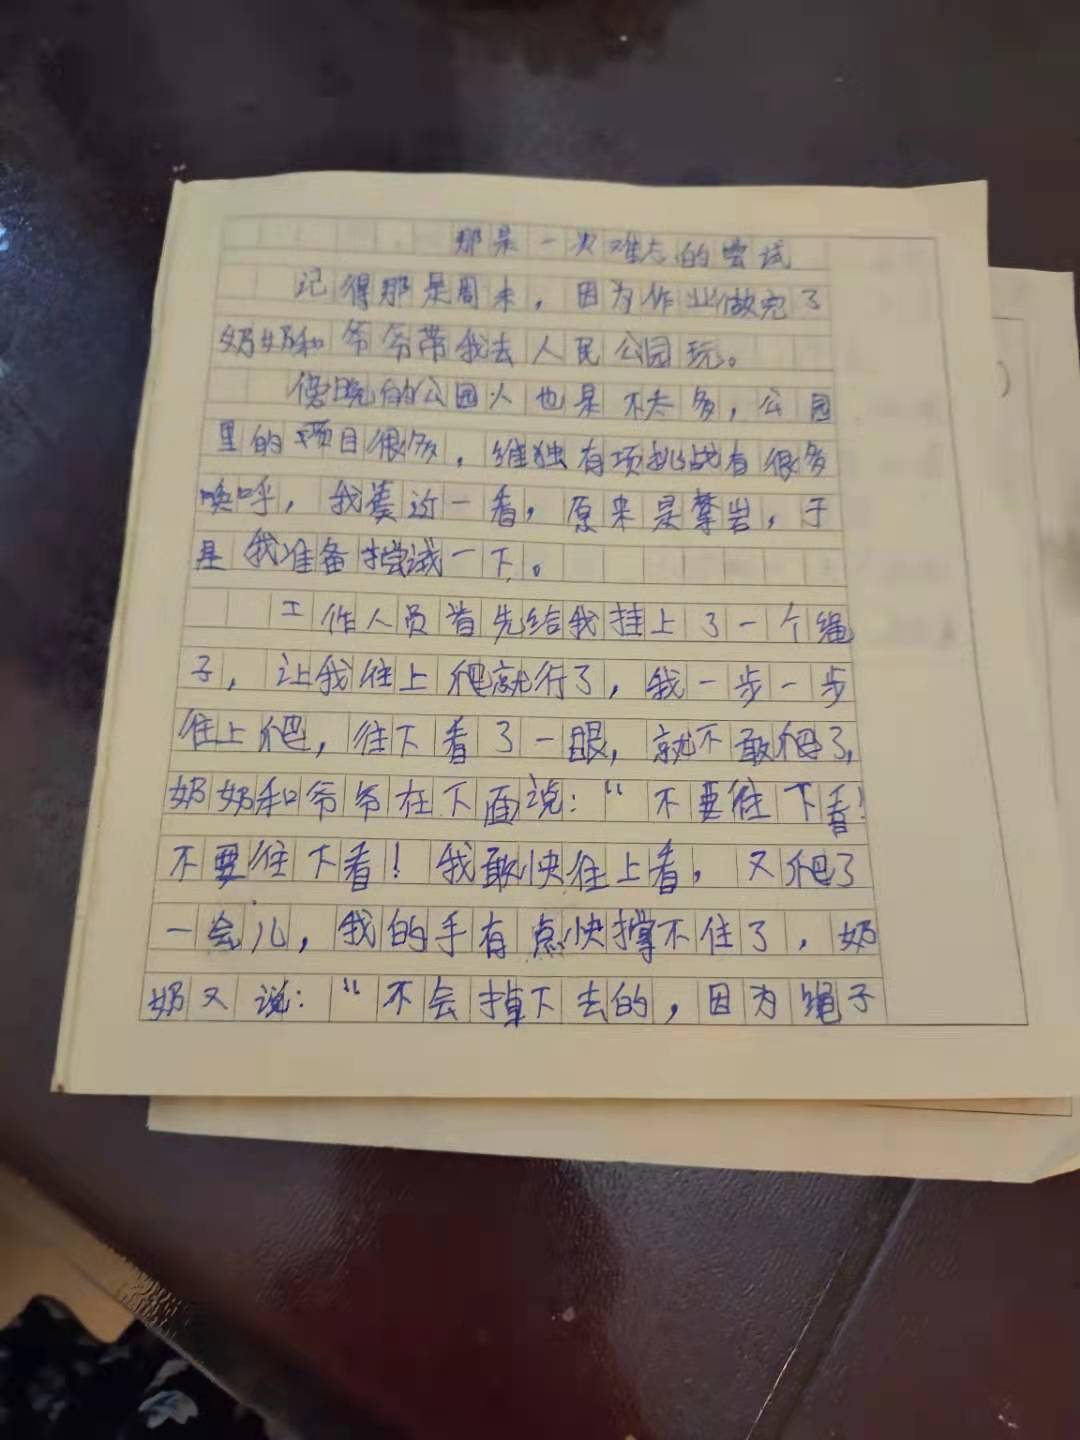 那是一次难忘的尝试
记得那是周末，因为作业做完了
奶奶和爷爷带我去人民公园玩。
傍晚的公园人也是不太多，公园
里的项目很多，维独有项挑战有很多
唤呼，我凑过一看，原来是攀岩，于
是我准备尝试一下。
工作人员首先给我挂上了一个绳
子，让我往上爬就行了，我一步一步
往上爬，往下看了一眼，就不敢爬了，
奶奶和爷爷在下面说：“不要往下看！
不要往下看！我敢快往上看，又爬了
一会儿，我的手有点快撑不住了，奶
奶又说：“不会掉下去的，因为绳子